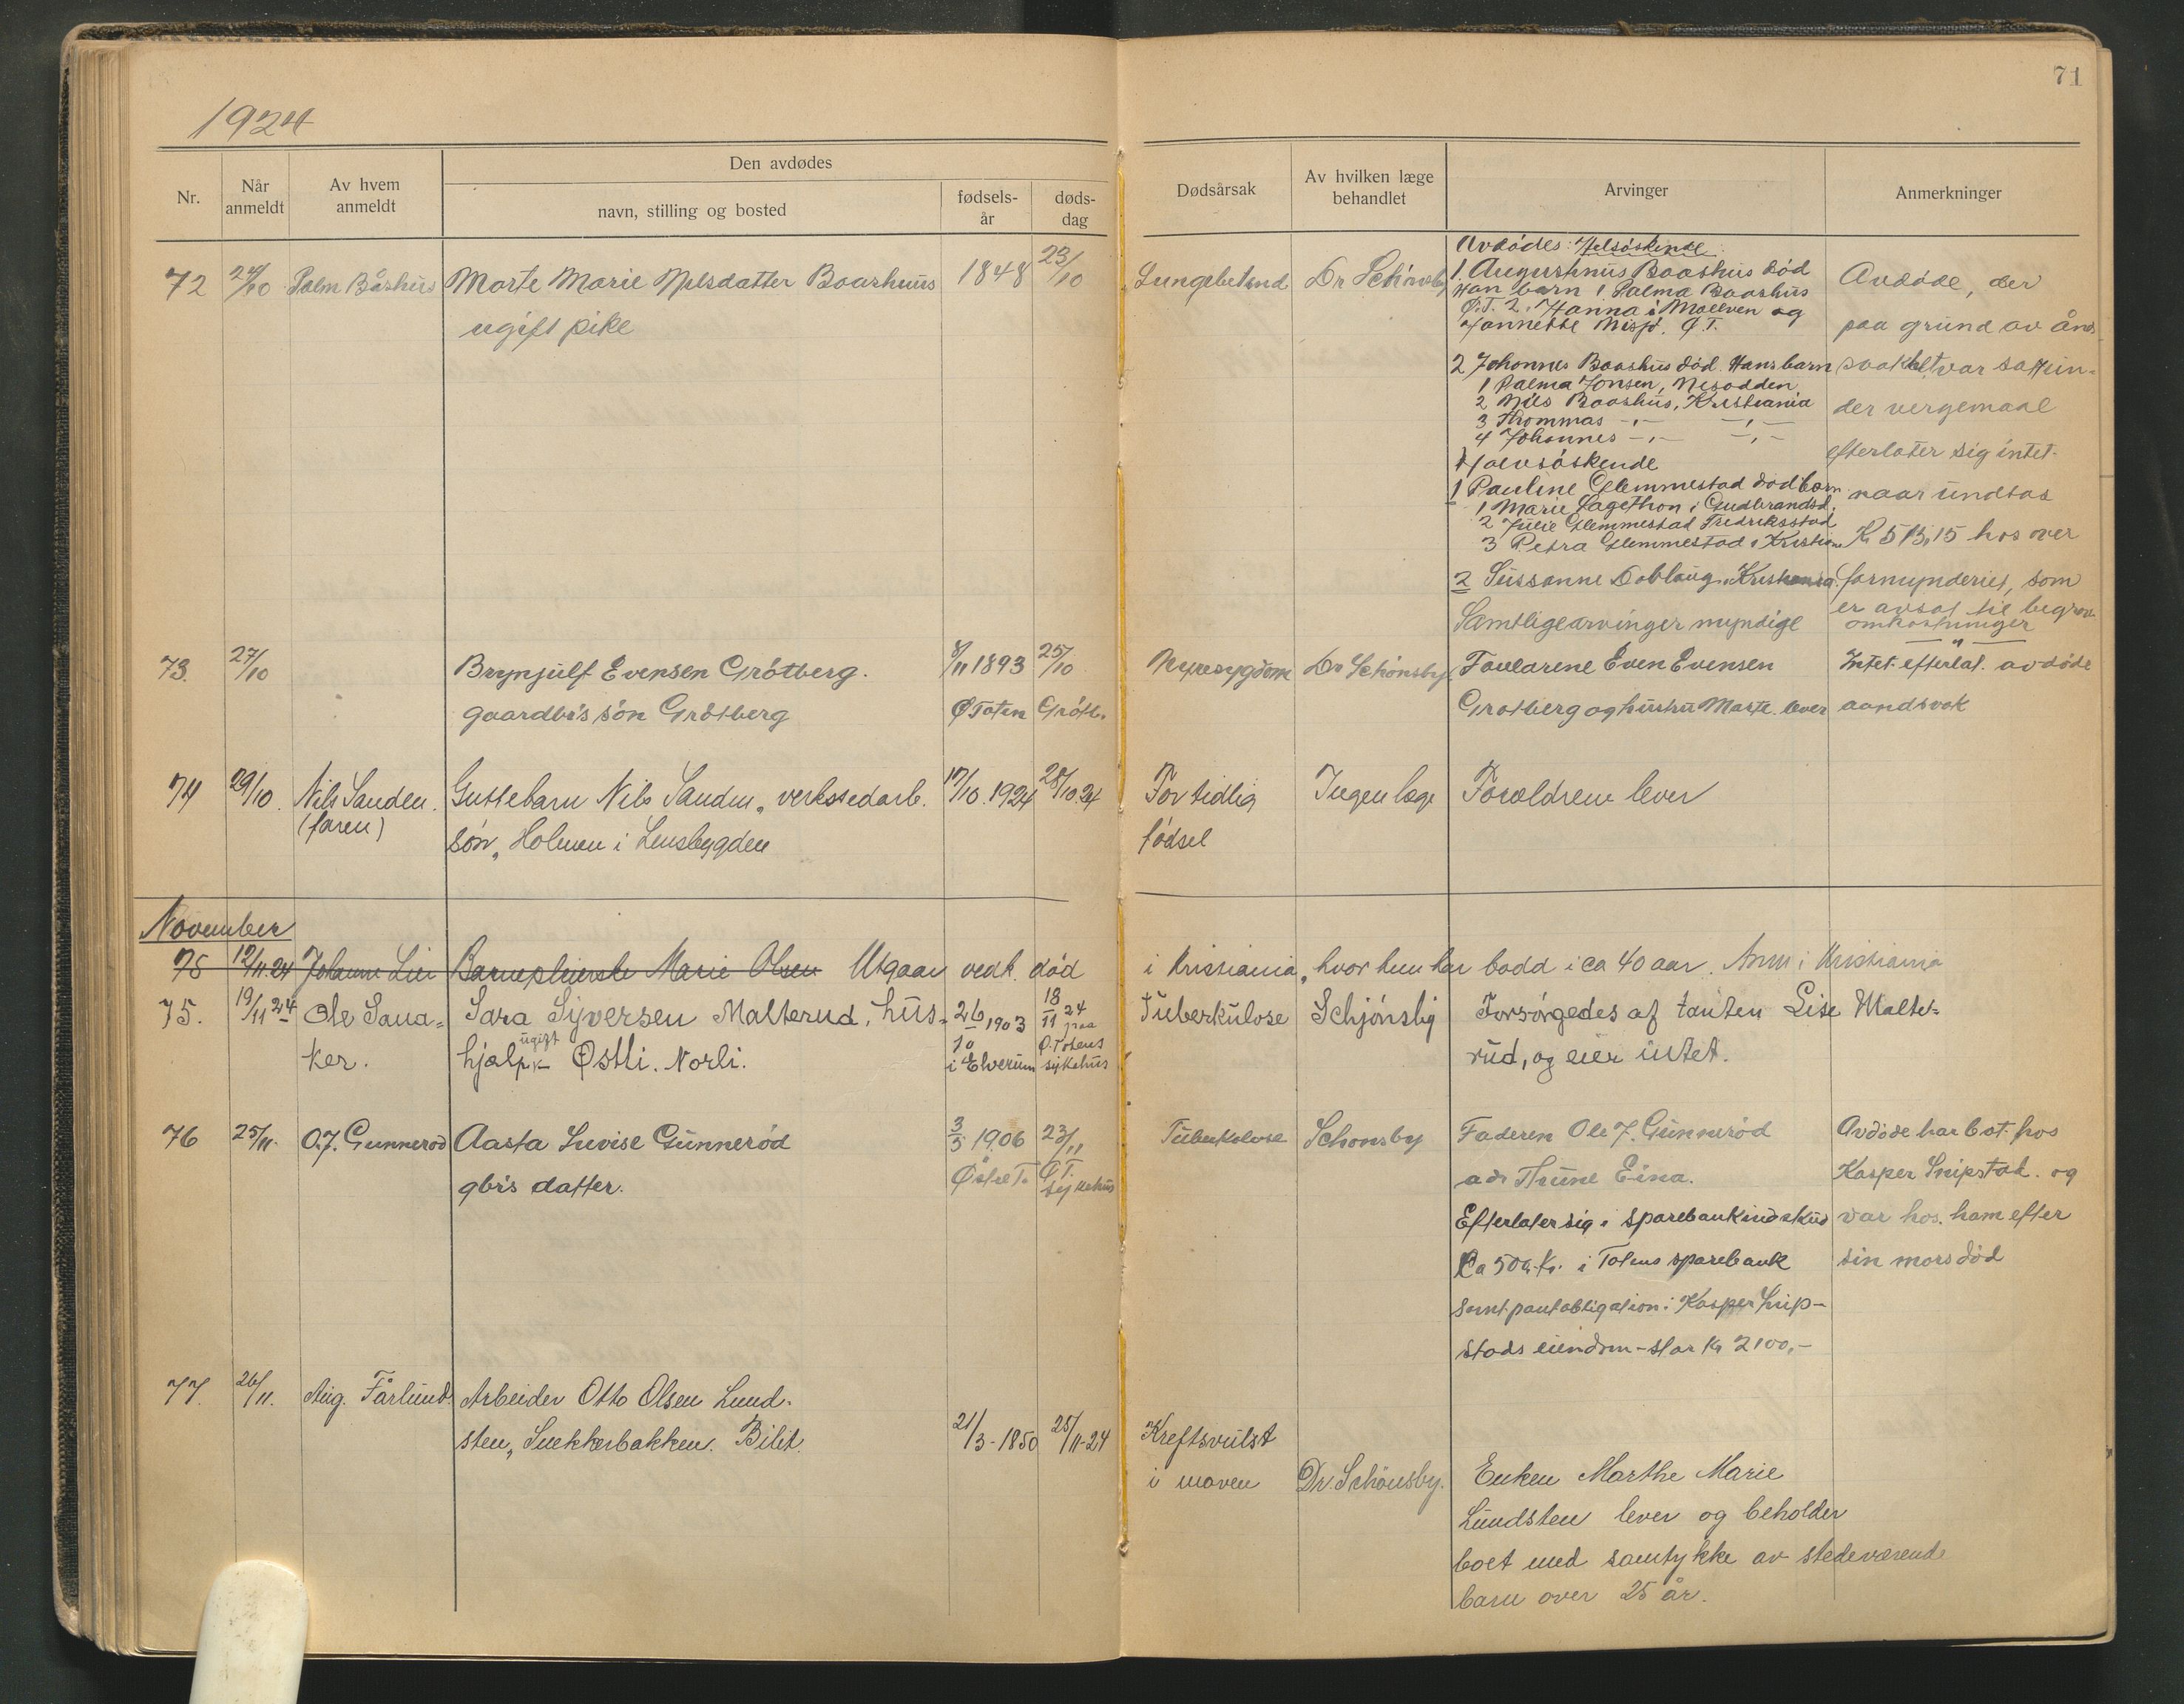 71
1924
Nr.
Når anmeldt
Av hvem anmeldt
Den avdødes
navn, stilling og bosted
fødsels-år
døds-dag
Dødsårsak
Av hvilken læge behandlet
Arvinger
Anmerkninger
72 24/10 Palm Båshus Marte Marie Nilsdatter Baashuus 1848 23/10
ugift pike
Lungebetend Dr Schönsby
Avdödes: Helsöskende
1. Augustinus Baashus död
Han barn 1. Palma Baashus
Ö.T. 2. Hanna i Moelven og
Jannette Ø.T.
2 Johannes Baashus död. Hans barn
1 Palma Jonsen, Nesodden
2 Nils Baashus, Kristiania
3 Thommas -,- -,-
4 Johannes -,- -,-
Halvsöskende
1 Pauline Glemmestad död barn
1 Marie Lagethon i Gudbrandsd.
2 Julie Glemmestad Fredriksstad
3 Petra Glemmestad i Kristian
2 Sussanne Doblaug. Kristiania.
Samtlige arvinger myndige
Avdöde, der
paa grund av ånds
svakhet var satt un-
der vergemaal
efterlater sig intet.
naar undtas
Kr 513,15 hos over
formynderiet, som
er avsat til begrav
omkostninger
73. 27/10 Brynjulf Evensen Grötberg. 8/11 1893 25/10
gaardbr's sön Grötberg Ø Toten Grötb.
Nyresygdom Dr Schönsby. Forældrene Even Evensen
Grötberg og hustru Marte lever
Intet efterlat. avdöde
aandsvak
74 29/10. Nils Sanden. Guttebarn Nils Sanden, verkstedarb. 17/10.1924 28/10.24
(faren) sön, Holmen i Lensbygden
For tidlig Ingen læge Forældrene lever
födsel
November
75 12/11.24 Johanne Lie Barnepleierske Marie Olsen Utgaar vedk. död
i Kristiania, hvor hun har bodd i ca 40 aar. Anm i Kristiania
75. 19/11 24 Ole Sana= Sara Syversen Malterud, hus- 26/10 1903 18/11 24 paa
ker. hjælp ugift Østli. Norli. i Elverum Ø.Totens sykehus
Tuberkulose Schjönsby Forsörgedes af tanten Lise Malte=
rud, og eier intet.
76 25/11. O.J. Gunneröd Aasta Luvise Gunneröd 3/5 1906 23/11
gbr's datter. Østre T. Ø T. sykehus
Tuberkulose Schonsby Faderen Ole J. Gunneröd
adr Thune Eina.
Efterlater sig i sparebankindskud
Ca 500 Kr. i Totens sparebank
samt pantobligation i Kasper Snip-
stads eiendom - stor Kr 2100,-
Avdöde har bot hos
Kasper Snipstad. og
var hos. ham efter
sin mors död
77. 26/11. Aug. Fårlund. Arbeider Otto Olsen Lund-
sten, Snekkerbakken. Bilit. 21/3-1850 25/11-24
Kreftsvulst
i maven Dr. Schönsby. Enken Marthe Marie
Lundsten lever og beholder
boet med samtykke av stedeværende
barn over 25 år.